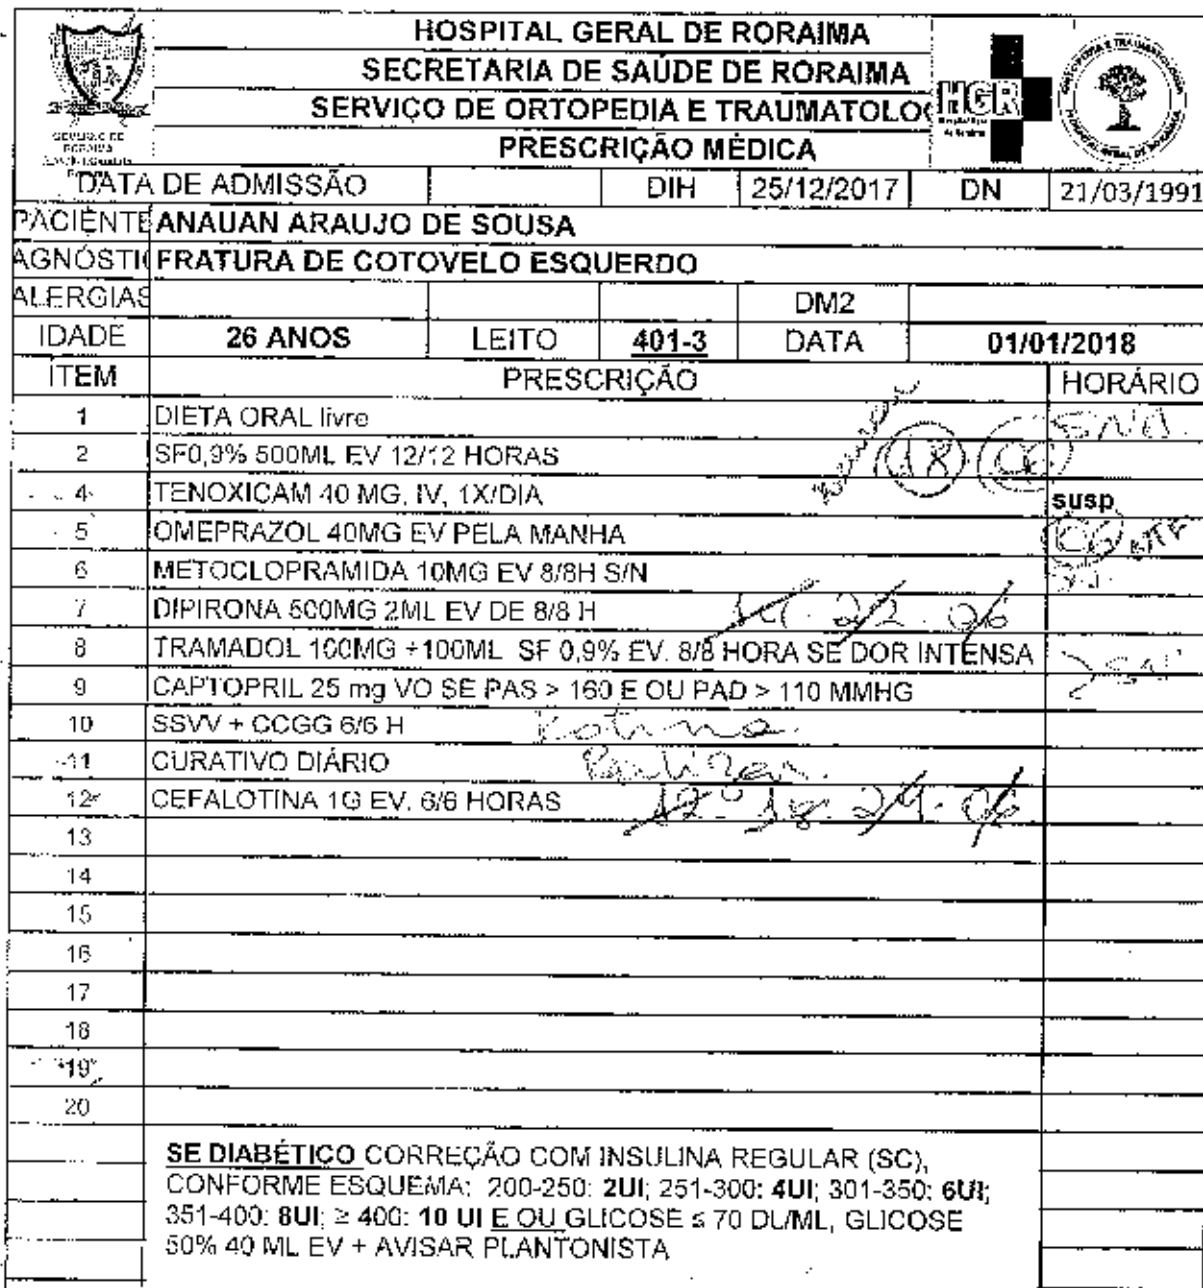 HOSPITAL GERAL DE RORAIMA
SECRETARIA DE SAÚDE DE RORAIMA
SERVIÇO DE ORTOPEDIA E TRAUMATOLO
PRESCRIÇÃO MÉDICA
HGR
DATA DE ADMISSÃO DIH 25/12/2017 DN 21/03/1991
PACIENTE ANAUAN ARAUJO DE SOUSA
AGNÓSTI FRATURA DE COTOVELO ESQUERDO
ALERGIAS DM2
IDADE 26 ANOS LEITO 401-3 DATA 01/01/2018
ITEM PRESCRIÇÃO HORÁRIO
1 DIETA ORAL livre SND.
2 SF0,9% 500ML EV 12/12 HORAS 18 06
4 TENOXICAM 40 MG, IV, 1X/DIA susp
5 OMEPRAZOL 40MG EV PELA MANHA 06
6 METOCLOPRAMIDA 10MG EV 8/8H S/N
7 DIPIRONA 500MG 2ML EV DE 8/8 H 14. 22. 06
8 TRAMADOL 100MG +100ML SF 0,9% EV. 8/8 HORA SE DOR INTENSA
9 CAPTOPRIL 25 mg VO SE PAS > 160 E OU PAD > 110 MMHG
10 SSVV + CCGG 6/6 H Rotina.
11 CURATIVO DIÁRIO Realizar.
12 CEFALOTINA 1G EV. 6/6 HORAS 12. 18. 24. 06
13
14
15
16
17
18
19
20
SE DIABÉTICO CORREÇÃO COM INSULINA REGULAR (SC),
CONFORME ESQUEMA: 200-250: 2UI; 251-300: 4UI; 301-350: 6UI;
351-400: 8UI; ≥ 400: 10 UI E OU GLICOSE ≤ 70 DL/ML, GLICOSE
50% 40 ML EV + AVISAR PLANTONISTA